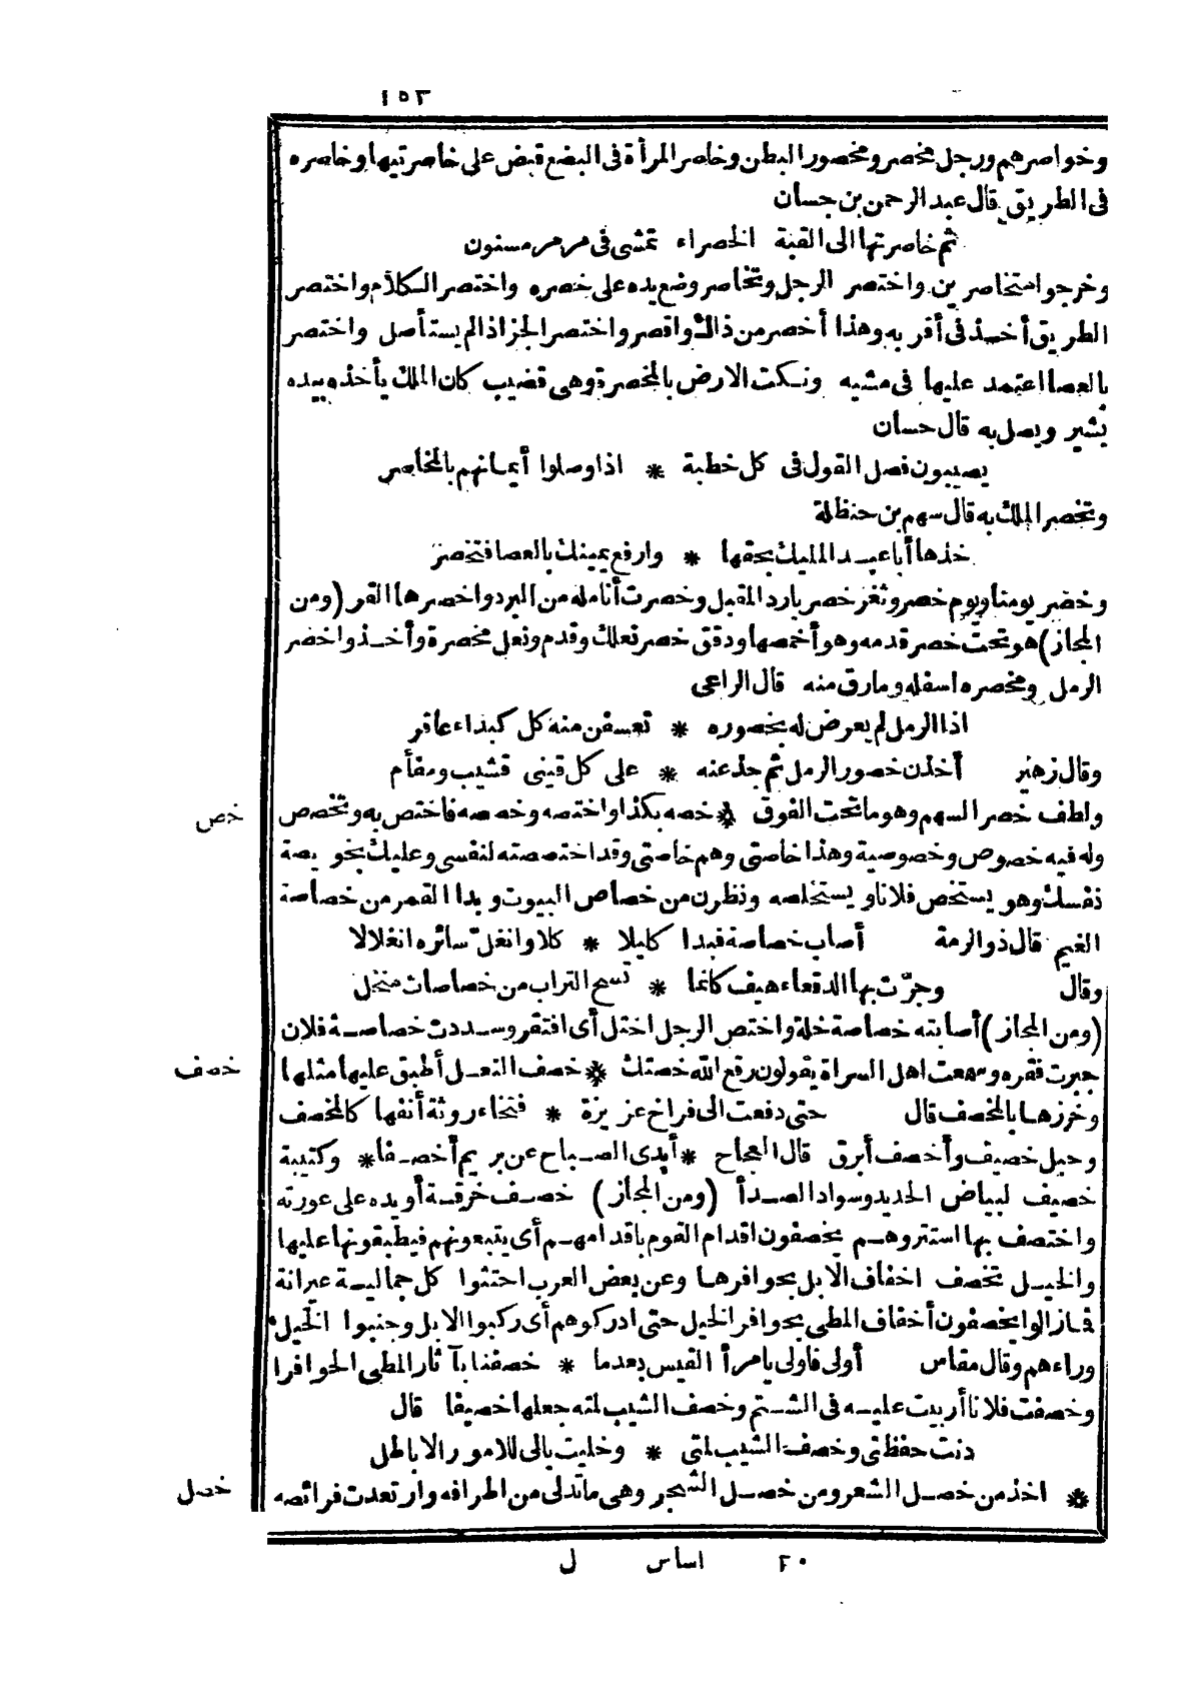 ١٥٣
وخواصرهم ورجل مخصر ومخصور البطن وخاصر المرأة فى البضع قبض على خاصرتيها وخاصره
فى الطريق قال عبد الرحمن بن حسان
ثم خاصرتها الى القبة الخضراء تمشى فى مرمر مسنون
وخرجوا متخاصرين واختصر الرجل وتخاصر وضع يده على خصره واختصر الكلام واختصر
الطريق أخذ فى أقربه وهذا أخصر من ذاك واقصر واختصر الجز اذا لم يستأصل واختصر
بالعصا اعتمد عليها فى مشيه ونكت الارض بالمخصرة وهى قضيب كان الملك يأخذه بيده
يشير ويصل به قال حسان
يصيبون فصل القول فى كل خطبة * اذا وصلوا أيمانهم بالمخاصر
وتخصر الملك به قال سهم بن حنظلة
خذها أبا عبد المليك بحقها * وارفع يمينك بالعصا فتخصر
وخصر يومنا ويوم خصر وثغر خصر بارد المقبل وخصرت أنامله من البرد واخصرها القر (ومن
المجاز) هو تحت خصر قدمه وهو أخمصها ودقق خصر نعلك وقدم ونعل مخصرة وأخذوا خصر
الرمل ومخصره اسفله ومارق منه قال الراعى
اذا الرمل لم يعرض له بخصوره * تعسفن منه كل كبداء عاقر
وقال زهير أخذن خصور الرمل ثم جزعنه * على كل قينى قشيب ومفأم
ولطف خصر السهم وهو ما تحت الفوق * خصه بكذا واختصه وخصصه فاختص به وتخصص
خص
وله فيه خصوص وخصوصية وهذا خاصتى وهم خاصتى وقد اختصصته لنفسى وعليك بخويصة
نفسك وهو يستخص فلانا ويستخلصه ونظرن من خصاص البيوت وبدا القمر من خصاصة
الغيم قال ذو الرمة أصاب خصاصة فبدا كليلا * كلا وانغل سائره انغلالا
وقال وجرّت بها الدقعاء هيف كانما * تسح التراب من خصاصات منخل
(ومن المجاز) أصابته خصاصة خلة واختص الرجل اختل أى افتقر وسددت خصاصة فلان
جبرت فقره وسمعت اهل السراة يقولون رفع الله خصتك * خصف النعل أطبق عليها مثلها
خصف
وخرزها بالمخصف قال حتى دفعت الى فراخ عزيزة * فتخاء روثة أنفها كالمخصف
وحبل خصيف وأخصف أبرق قال العجاج * أبدى الصباح عن بريم أخصفا * وكتيبة
خصيف لبياض الحديد وسواد الصدأ (ومن المجاز) خصف خرقة أو يده على عورته
واختصف بها استتر وهم يخصفون اقدام القوم باقدامهم أى يتبعونهم فيطبقونها عليها
والخيل تخصف اخفاف الابل بحوافرها وعن بعض العرب احتثوا كل جمالية عيرانة
فمازالوا يخصفون أخفاف المطى بحوافر الخيل حتى ادركوهم أى ركبوا الابل وجنبوا الخيل
وراءهم وقال مقاس أولى فاولى يا مرأ القيس بعدما * خصفنا بآثار المطى الحوافرا
وخصفت فلانا أربيت عليه فى الشتم وخصف الشيب لمته جعلها خصيفا قال
دنت حفظتى وخصف الشيب لمتى * وخليت بالى للامور الاباطل
* اخذ من خصل الشعر ومن خصل الشجر وهى ما تدلى من اطرافه وارتعدت فرائصه
خصل
٢٠ اساس ل